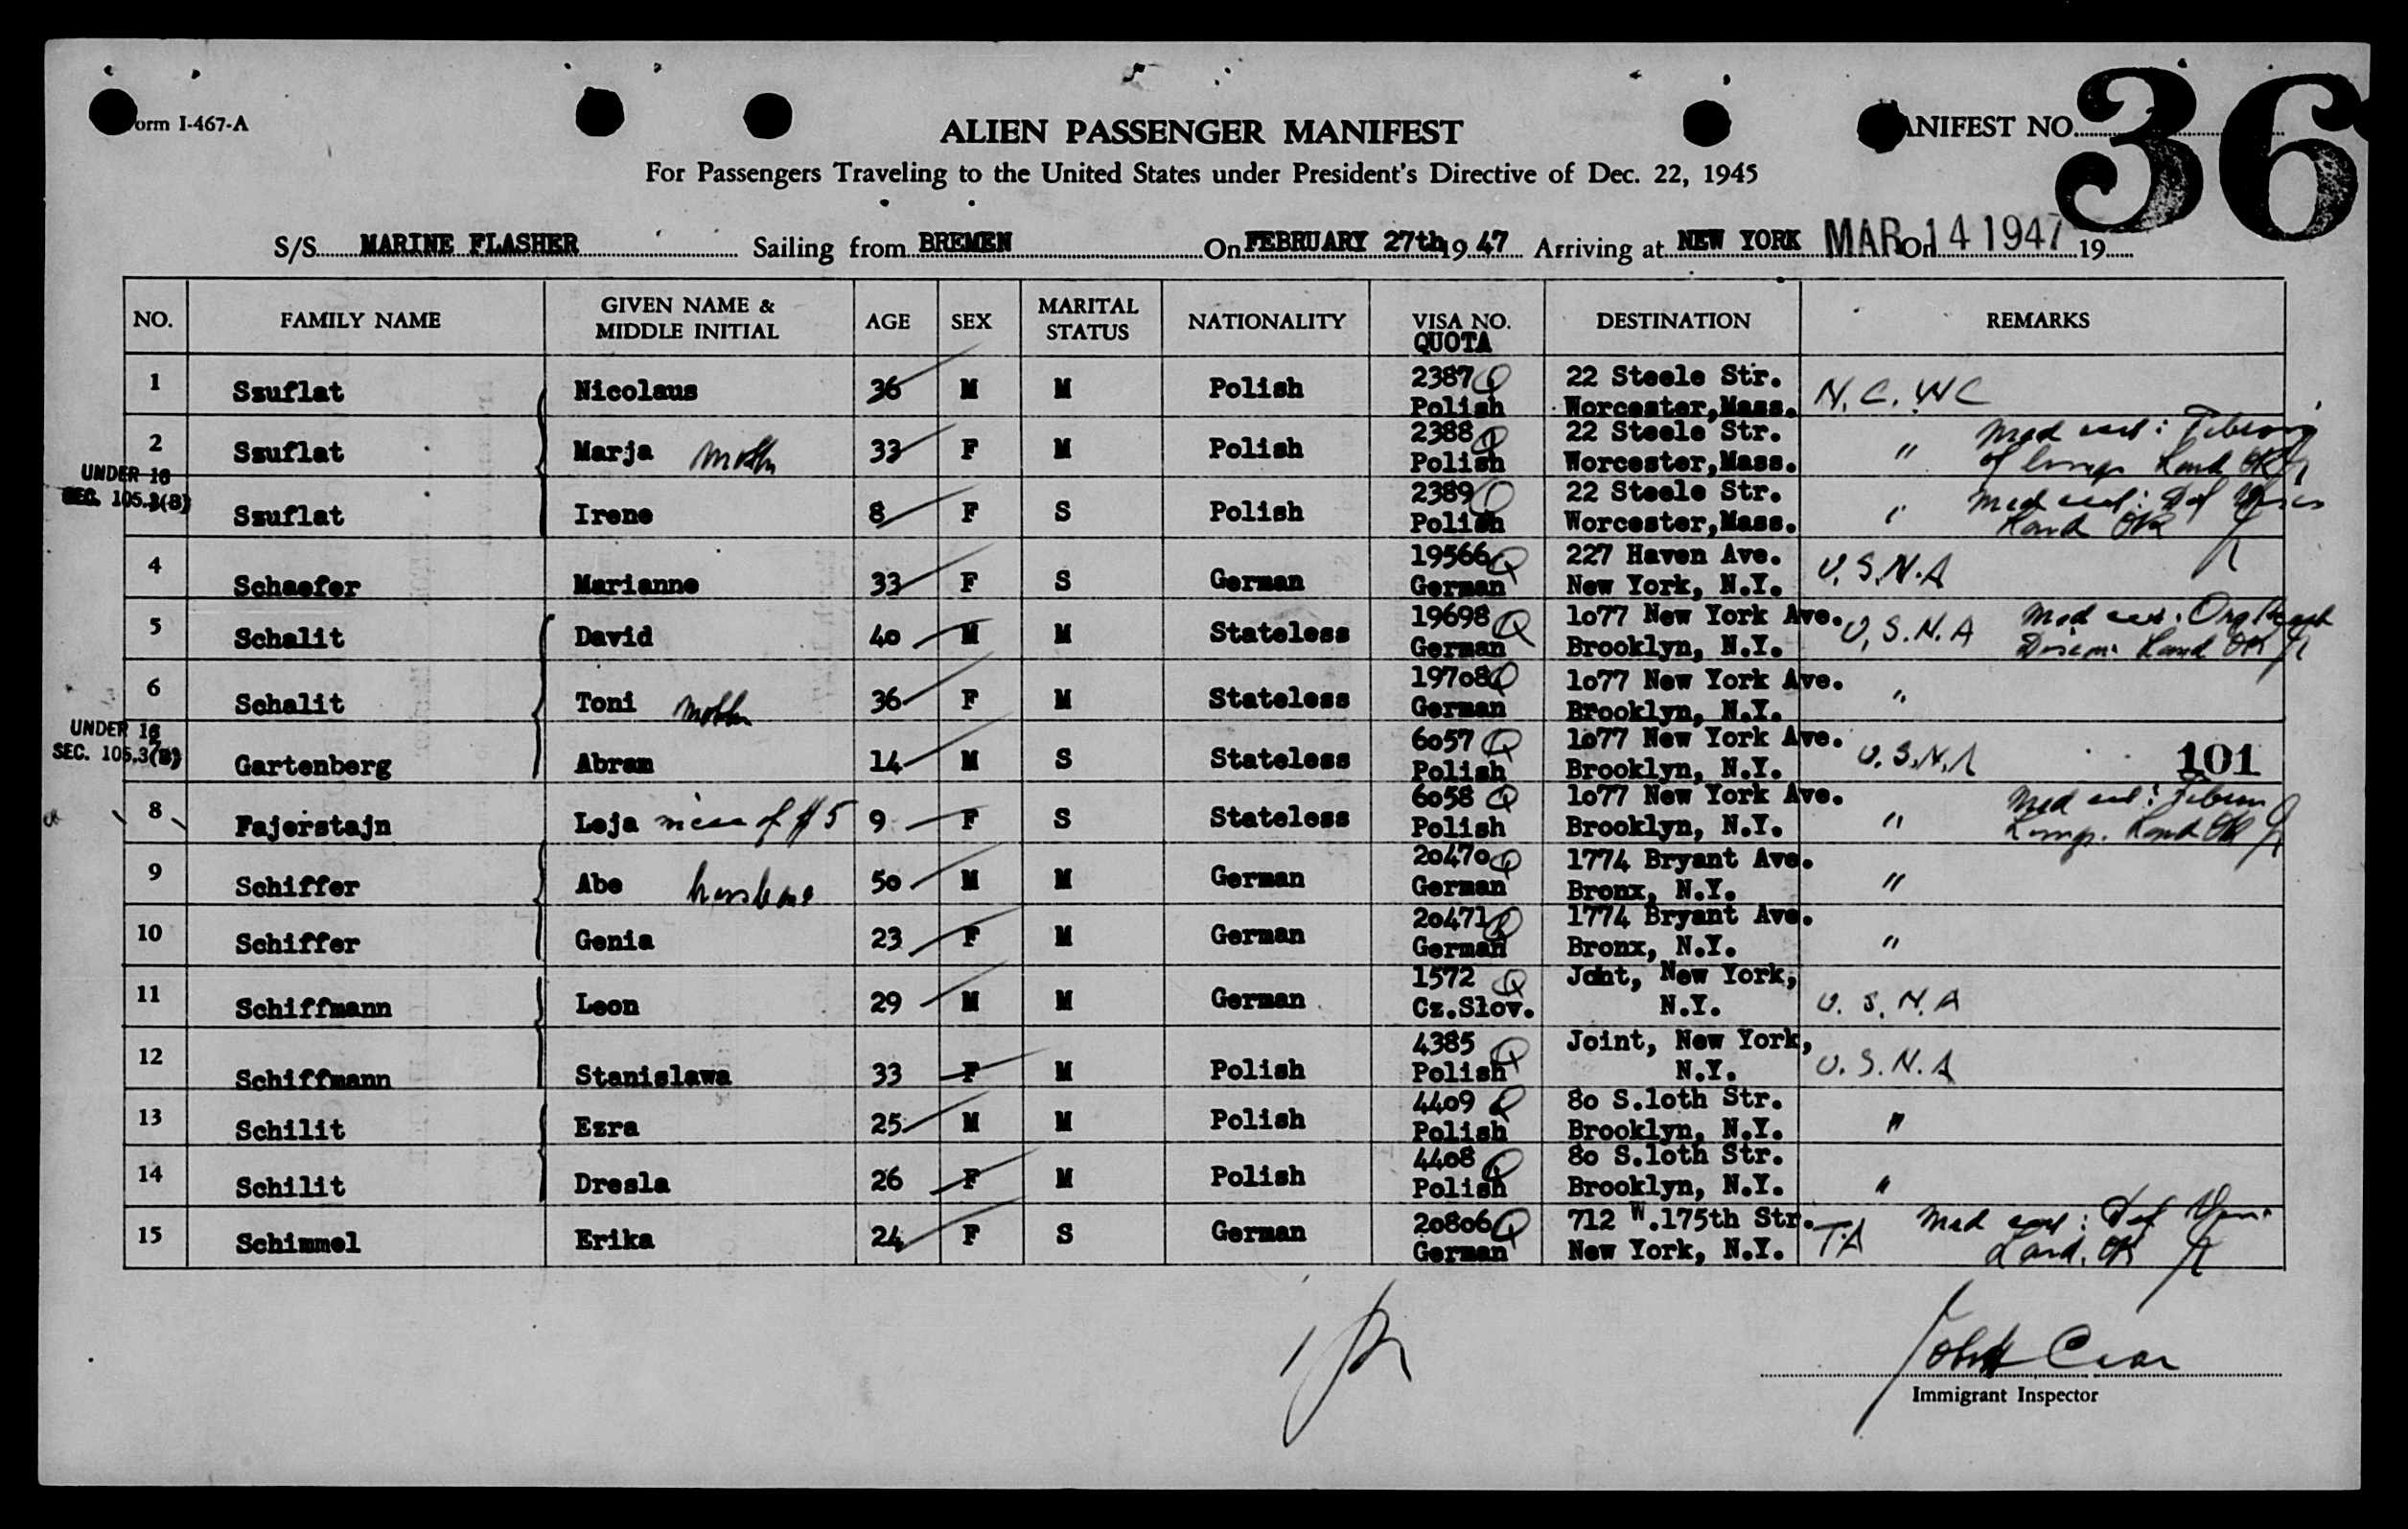 Form I-467-A
ALIEN PASSENGER MANIFEST
MANIFEST NO. 36
For Passengers Traveling to the United States under President's Directive of Dec. 22, 1945
S/S MARINE FLASHER Sailing from BREMEN On FEBRUARY 27th 19 47 Arriving at NEW YORK On MAR 14 1947 19
NO. FAMILY NAME GIVEN NAME & MIDDLE INITIAL AGE SEX MARITAL STATUS NATIONALITY VISA NO. QUOTA DESTINATION REMARKS
1 Szuflat Nicolaus 36 M M Polish 2387 Q Polish 22 Steele Str. Worcester, Mass. N.C.WC
2 Szuflat Marja Moth 33 F M Polish 2388 Q Polish 22 Steele Str. Worcester, Mass. " Med cert: of lungs Land OK
UNDER 16 SEC. 105.3(B)
Szuflat Irene 8 F S Polish 2389 Q Polish 22 Steele Str. Worcester, Mass. " Med cert: Def Land OK
4 Schaefer Marianne 33 F S German 19566 Q German 227 Haven Ave. New York, N.Y. U.S.N.A
5 Schalit David 40 M M Stateless 19698 Q German 1o77 New York Ave. Brooklyn, N.Y. U.S.N.A Med cert: Org Heart Land OK
6 Schalit Toni Mother 36 F M Stateless 197o8 Q German 1o77 New York Ave. Brooklyn, N.Y. "
UNDER 16 SEC. 105.3(B)
7 Gartenberg Abram 14 M S Stateless 6o57 Q Polish 1o77 New York Ave. Brooklyn, N.Y. U.S.N.A 101
8 Fajerstajn Leja niece of #5 9 F S Stateless 6o58 Q Polish 1o77 New York Ave. Brooklyn, N.Y. " Med cert: Land OK
9 Schiffer Abe husband 5o M M German 2o47o Q German 1774 Bryant Ave. Bronx, N.Y. "
10 Schiffer Genia 23 F M German 2o471 Q German 1774 Bryant Ave. Bronx, N.Y. "
11 Schiffmann Leon 29 M M German 1572 Q Cz.Slov. Joint, New York, N.Y. U.S.N.A
12 Schiffmann Stanislawa 33 F M Polish 4385 Q Polish Joint, New York, N.Y. U.S.N.A
13 Schilit Ezra 25 M M Polish 44o9 Q Polish 8o S.1oth Str. Brooklyn, N.Y. "
14 Schilit Dresla 26 F M Polish 44o8 Q Polish 8o S.1oth Str. Brooklyn, N.Y. "
15 Schimmel Erika 24 F S German 2o8o6 Q German 712 W.175th Str. New York, N.Y. T.A Med cert: Def Land. OK
Immigrant Inspector